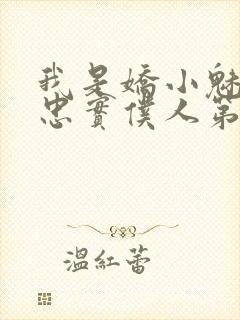 我是嬌小魅
忠實僕人第
溫紅蕾